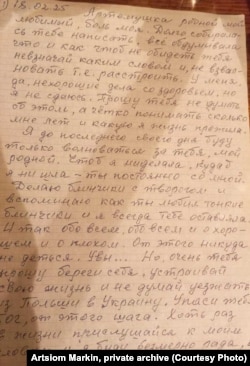 18.02.25
Артёмушка родной мой,
любимый, боль моя. Долго собиралась
тебе написать, всё обдумывала
что и как чтоб не обидеть тебя
невзначай каким словом и не взвол-
новать т.к. расстроить. У меня,
да, нехорошие дела со здоровьем, но
я не сдаюсь. Прошу тебя не думать
об этом, а чётко понимать сколько
мне лет и какую я жизнь прожила.
Я до последнего своего дня буду
только волноваться за тебя, мой
родной. Что б я ни делала, куда б
я ни шла - ты постоянно со мной.
Делаю блинчики с творогом и
вспоминаю как ты любил тонкие
блинчики и я всегда тебе оставляла.
И так обо всём, обо всём и о хоро-
шем и о плохом. От этого никуда
не деться. Увы... Но, очень тебя
прошу береги себя, устраивай
свою жизнь и не думай уезжать
из Польши в Украину. Упаси тебя
Бог, от этого шага. Хоть раз
в жизни прислушайся к моим
словам и я буду безмерно рада,
Artsiom Markin, private archive (Courtesy Photo)